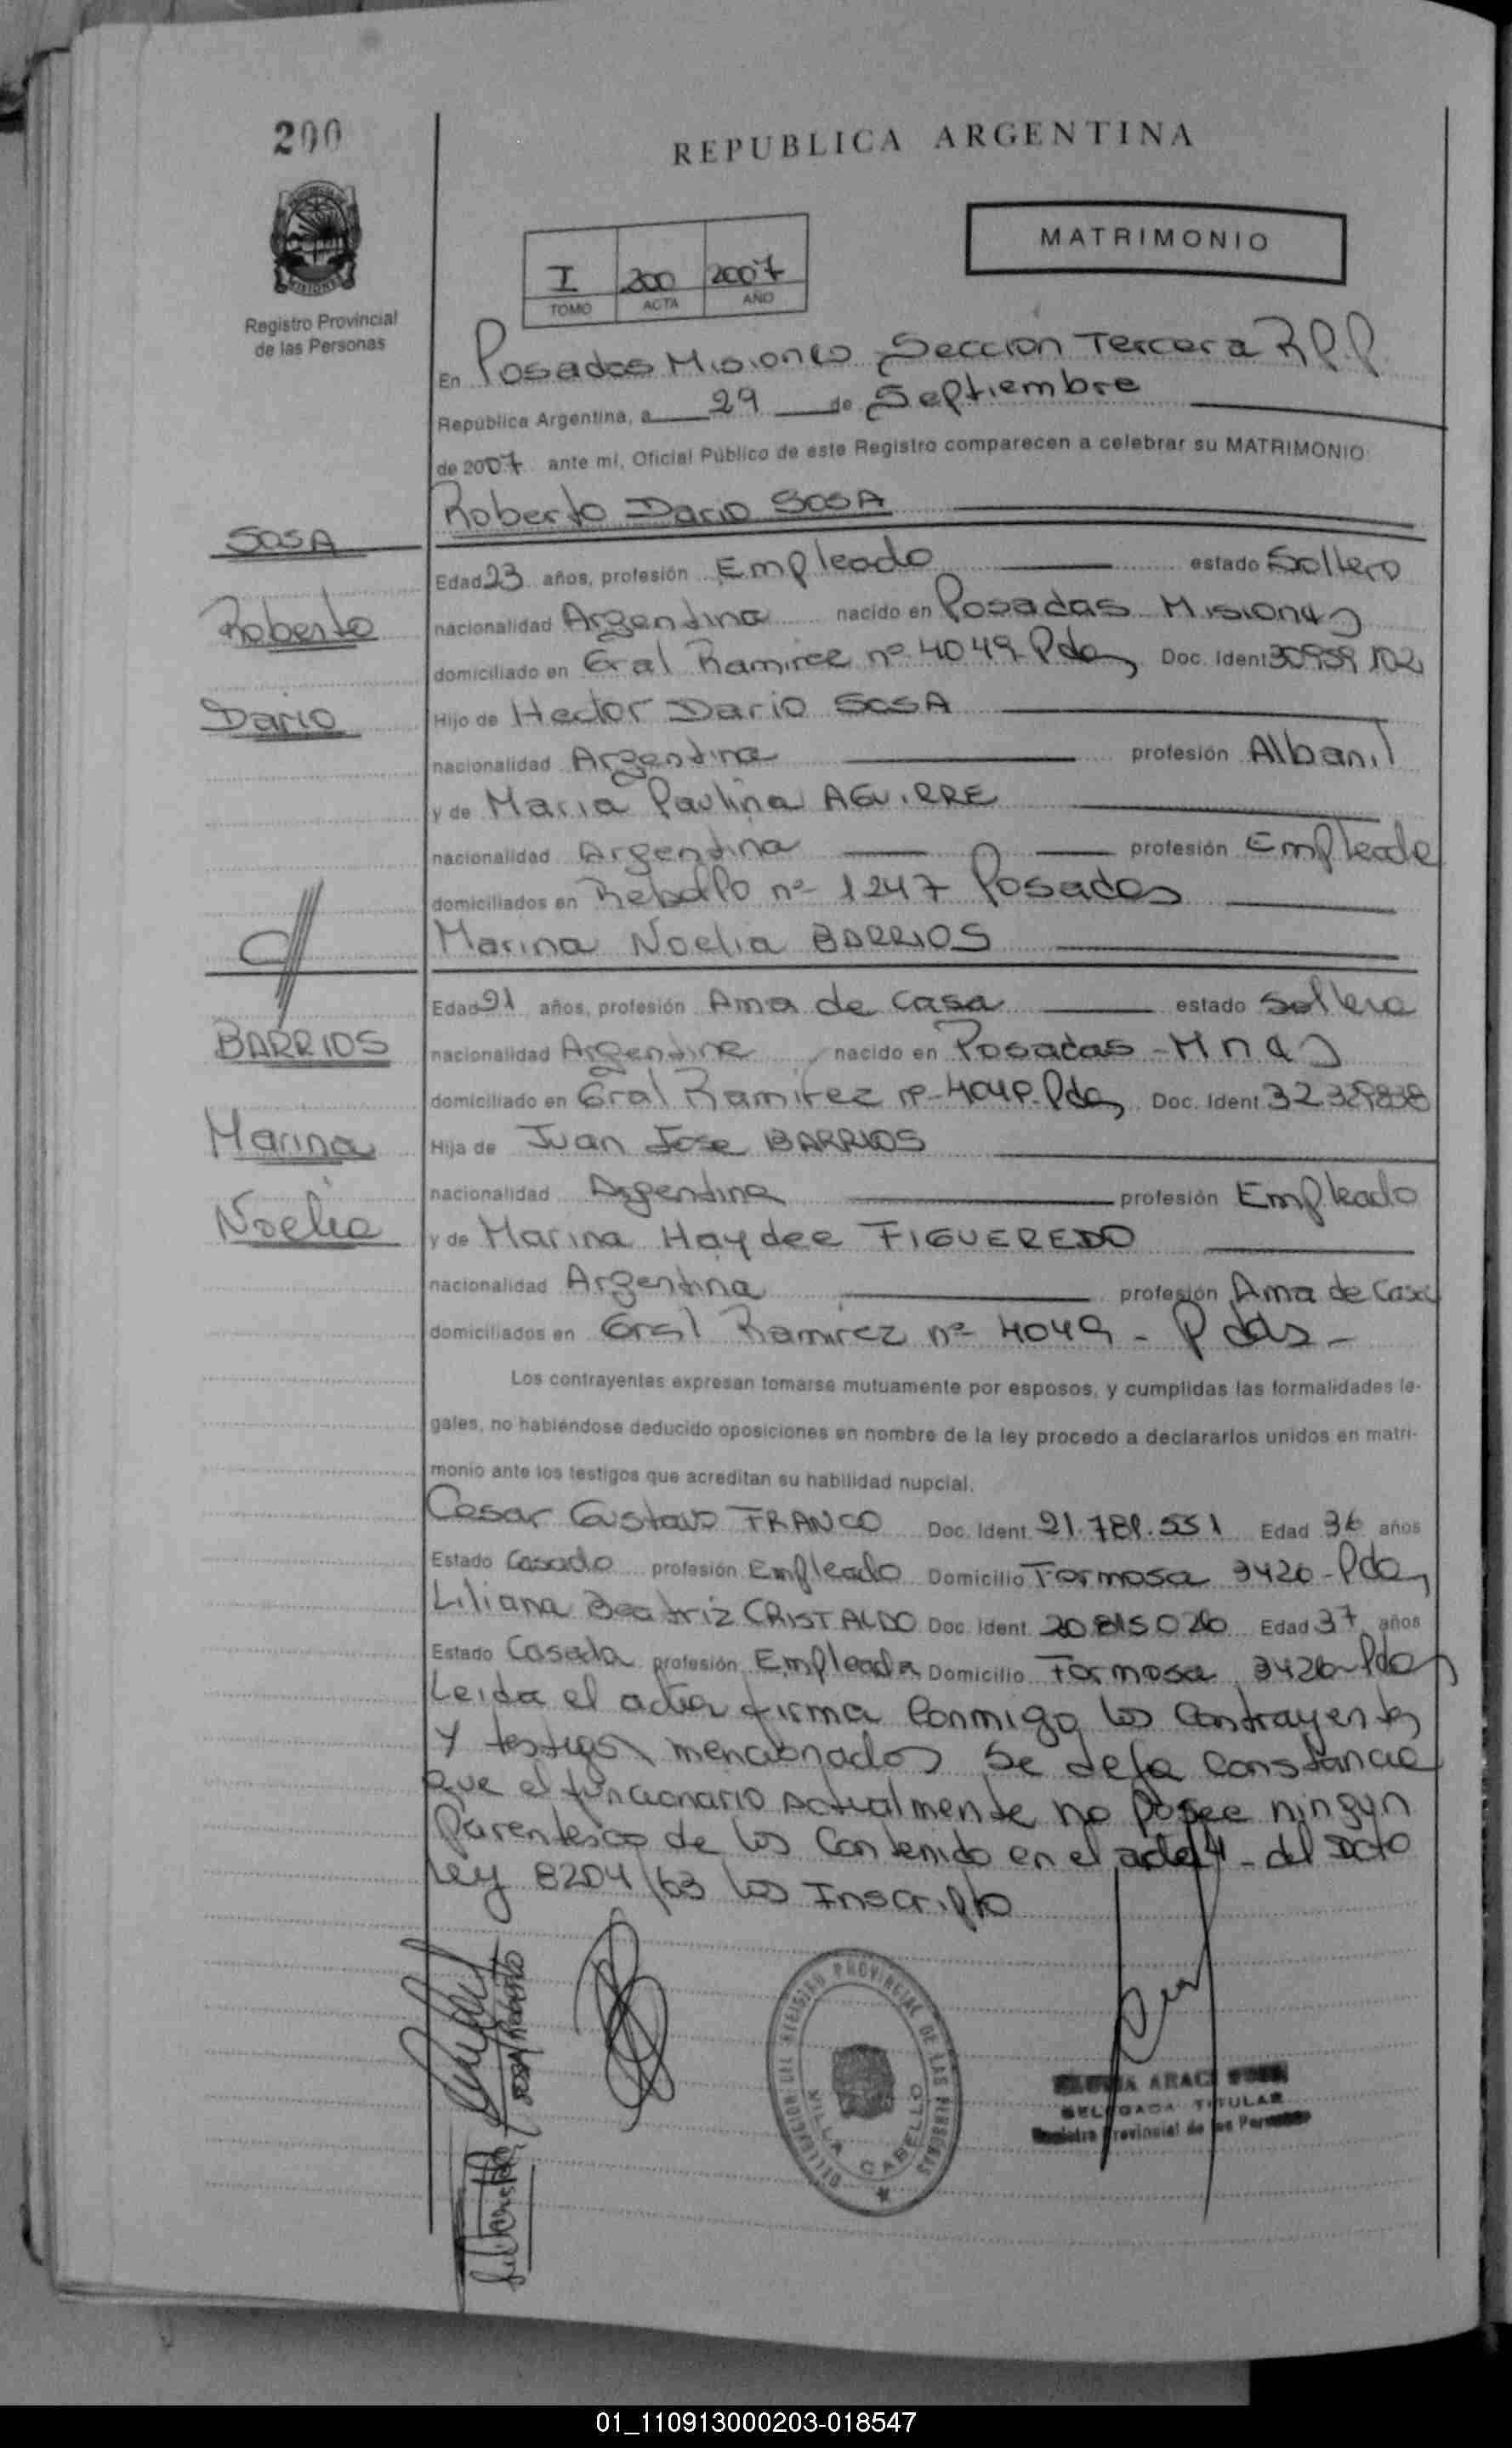 200
REPUBLICA ARGENTINA
MATRIMONIO
I 200 2007
TOMO ACTA AÑO
Registro Provincial
de las Personas
En Posadas Misiones Sección Tercera R.P.P
República Argentina, a 29 de Septiembre
de 2007 ante mí, Oficial Público de este Registro comparecen a celebrar su MATRIMONIO
Roberto Dario SOSA
SOSA
Edad 23 años, profesión Empleado estado Soltero
Roberto
nacionalidad Argentina nacido en Posadas Misiones
domiciliado en Gral Ramirez nº 4049 Pdas Doc. Ident 30959102
Dario
Hijo de Hector Dario SOSA
nacionalidad Argentina profesión Albanil
y de Maria Paulina AGUIRRE
nacionalidad Argentina profesión Empleada
domiciliados en nº 1247 Posadas
C/
Marina Noelia BARRIOS
Edad 21 años, profesión Ama de Casa estado Soltera
BARRIOS
nacionalidad Argentina nacido en Posadas - Mnes
domiciliado en Gral Ramirez nº 4049 Pdas Doc. Ident 32329838
Marina
Hija de Juan Jose BARRIOS
nacionalidad Argentina profesión Empleado
Noelia
y de Marina Haydee FIGUEREDO
nacionalidad Argentina profesión Ama de Casa
domiciliados en Gral Ramirez nº 4049 - Pdas -
Los contrayentes expresan tomarse mutuamente por esposos, y cumplidas las formalidades le-
gales, no habiéndose deducido oposiciones en nombre de la ley procedo a declararlos unidos en matri-
monio ante los testigos que acreditan su habilidad nupcial.
Cesar Gustavo FRANCO Doc. Ident. 21.781.551 Edad 36 años
Estado Casado profesión Empleado Domicilio Formosa 3420 - Pdas
Liliana Beatriz CRISTALDO Doc. Ident. 20815020 Edad 37 años
Estado Casada profesión Empleada Domicilio Formosa 3420 - Pdas
Leida el acta firma Conmigo los Contrayentes
y testigos mencionados Se deja Constancia
que el funcionario actualmente no Posee ningun
Parentesco de los Contenido en el arte 4 - del Dcto
Ley 8204/63 los Inscripto
SOSA Roberto
DELEGACION DEL REGISTRO PROVINCIAL DE LAS PERSONAS
VILLA CABELLO
ARACI
DELEGADA TITULAR
Registro Provincial de las Personas
01_110913000203-018547